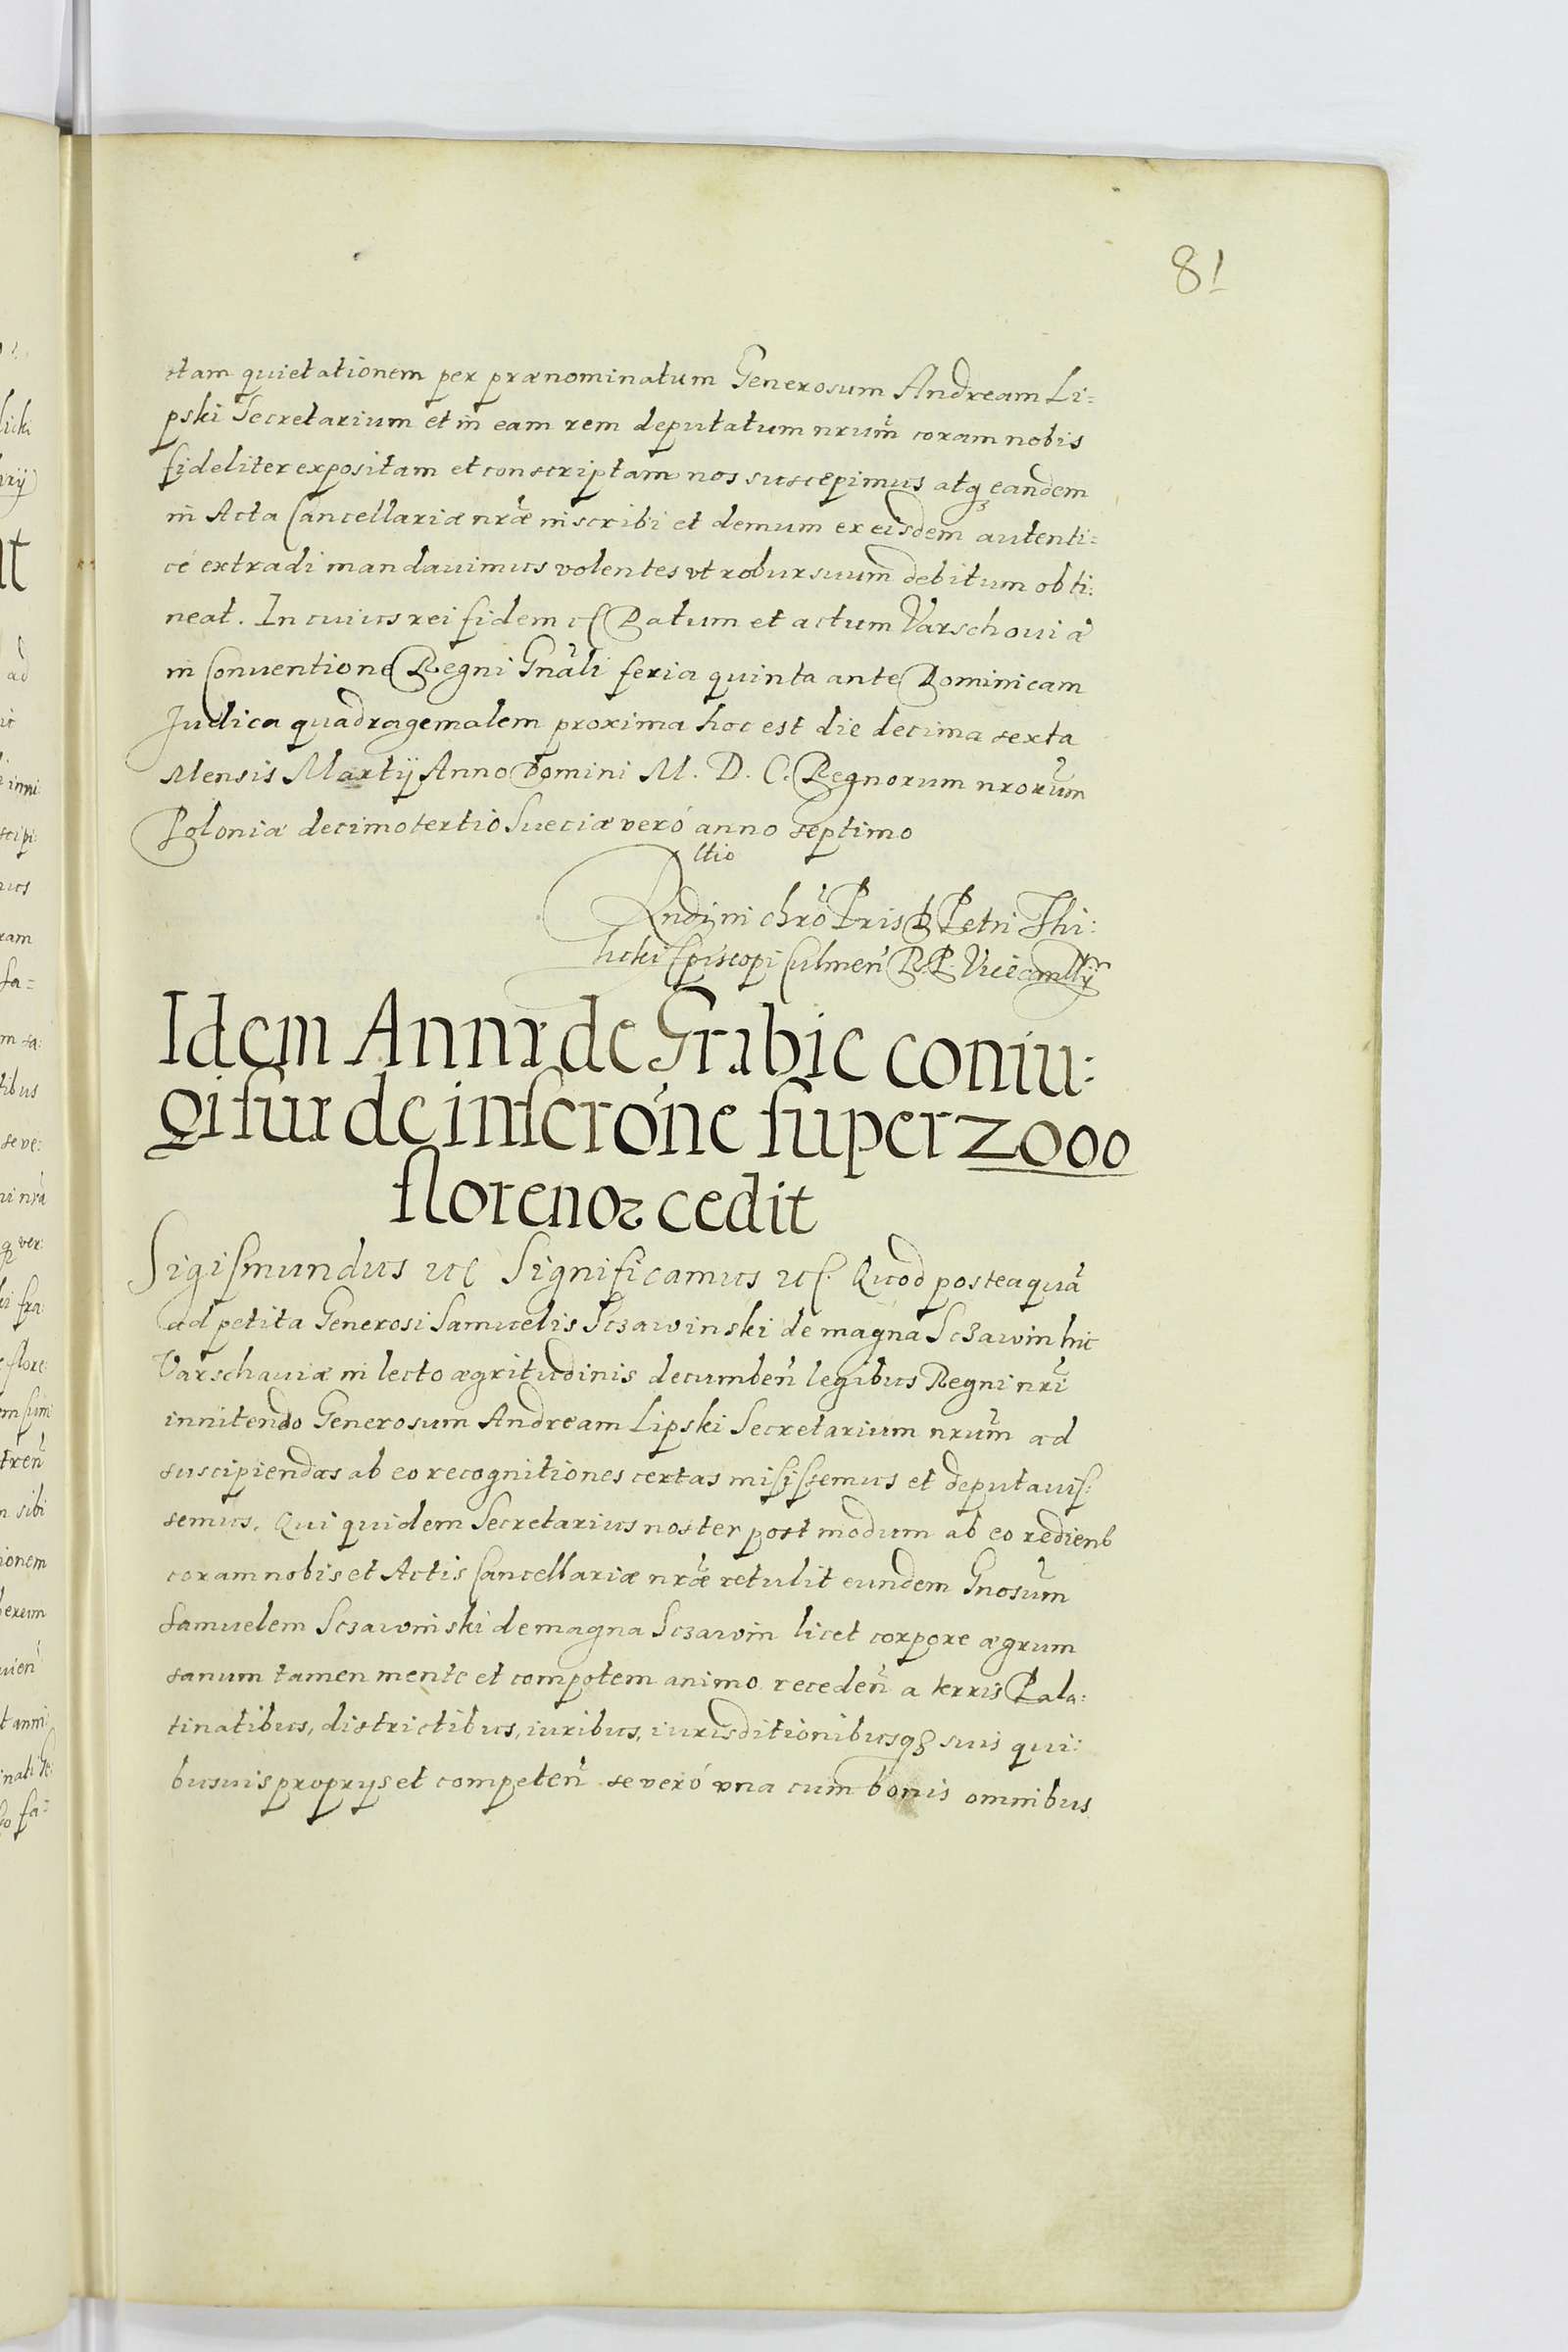 81
ctam quietationem per prænominatum Generosum Andream Li=
pski Secretarium et in eam rem deputatum nrum̃ coram nobis
fideliter expositam et conscriptam nos suscepimus atq eandem
in Acta Cancellariæ nræ̃ inscribi et demum ex eisdem autenti=
cé extradi mandauimus volentes vt robur suum debitum obti:
neat. In cuius rei fidem etc Datum et actum Varschouiæ
in Conuentione Regni Gnãli feria quinta ante Dominicam
Judica quadragemalem proxima hoc est die decima sexta
Mensis Martij Anno Domini M. D. C. Regnorum nrorum̃
Poloniæ decimotertio Sueciæ veró anno septimo
Rltio
Rndi in chrõ Pris D Petri Thi:
licki Episcopi Culmen̄ R. P. Vicecancllrij
Idem Annæ de Grabie coniu:
gi suæ de inscrõne super 2000
florenoꝝ cedit
Sigismundus etc Significamus etc. Quod posteaquã
ad petita Generosi Samuelis Sczawinski de magna Sczawin hic
Varschauiæ in lecto ægritudinis decumben̄ legibus Regni nrĩ
innitendo Generosum Andream Lipski Secretarium nrum̃ ad
suscipiendas ab eo recognitiones certas misissemus et deputauis:
semus. Qui quidem Secretarius noster post modum ab eo rediens
coram nobis et Actis Cancellariæ nræ̃ retulit eundem Gnosum̃
Samuelem Sczawinski de magna Sczawin licet corpore ægrum
sanum tamen mente et compotem animo receden̄ a terris Pala:
tinatibus, districtibus, iuribus, iurisditionibusq suis qui:
busuis proprijs et competen̄ se veró vna cum bonis omnibus